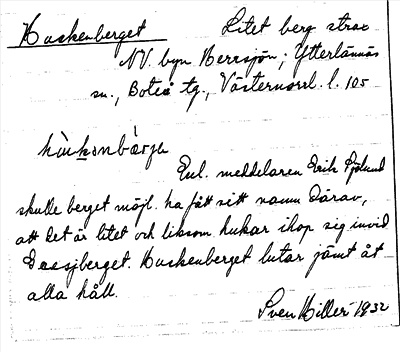 Huskenberget Litet berg strax
NV. byn Herrsjön; Ytterlännäs
sn., Boteå tg., Västernorrl. l. 105
Enl. meddelaren Erik Sjölund
skulle berget möjl. ha fått sitt namn därav,
att det är litet och liksom hukar ihop sig invid
Huskenberget lutar jämt åt
alla håll.
Sven Hillér 1932